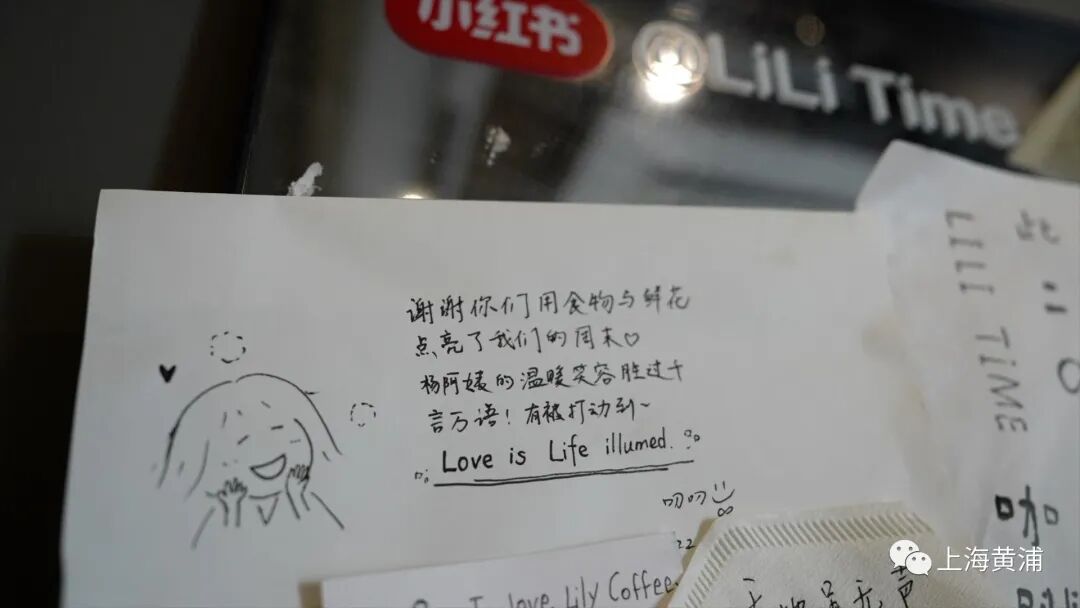 小红书
@LiLi Time
谢谢你们用食物与鲜花
点亮了我们的周末♡
杨阿姨的温暖笑容胜过千
言万语！有被打动到~
Love is Life illumed.
叨叨
22
I love Lily Coffee.
LILI TIME
咖
无声
上海黄浦